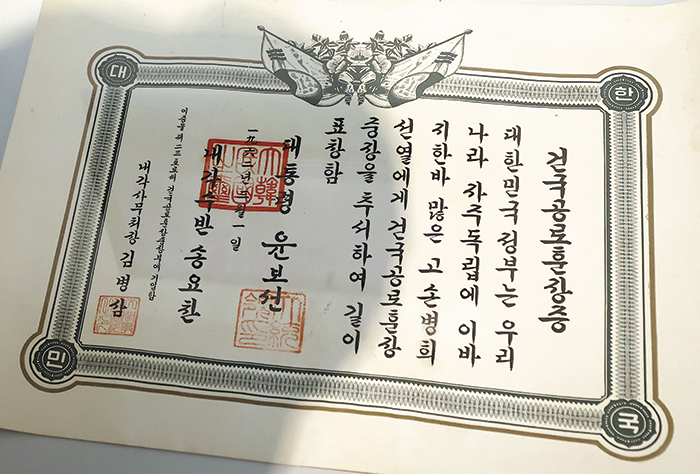 한
대
민
국
건국공로훈장증
대한민국 정부는 우리
나라 자주독립에 이바
지한바 많은 고 손병희
선열에게 건국공로훈장
중장을 추서하여 길이
표창함
一九六二년 三월 一일
대통령 윤보선
내각수반 송요찬
이증을 제 호로써 건국공로훈장증부에 기입함
내각사무처장 김병삼